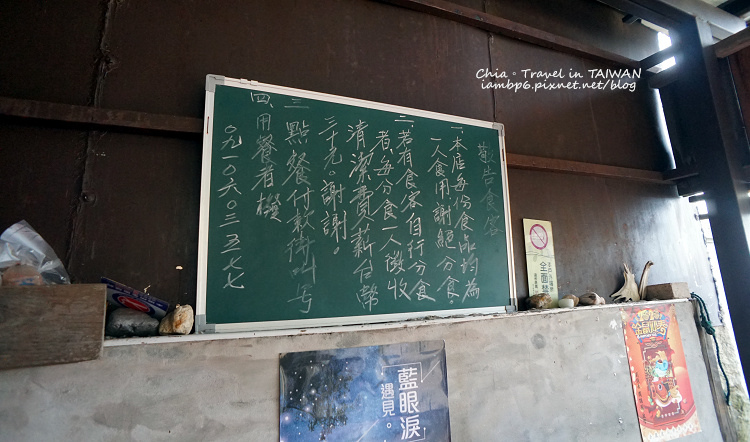 Chia。Travel in TAIWAN
iambp6.pixnet.net/blog
敬告食客
一、本店每份食品均為
一人食用謝絕分食。
二、若有食客自行分食
者、每分食一人徵收
清潔費薪台幣
三十元。謝謝。
三、點餐付款後叫号
四、用餐看檨
〇九一〇六〇三五七七
全面禁
藍眼淚
遇見。